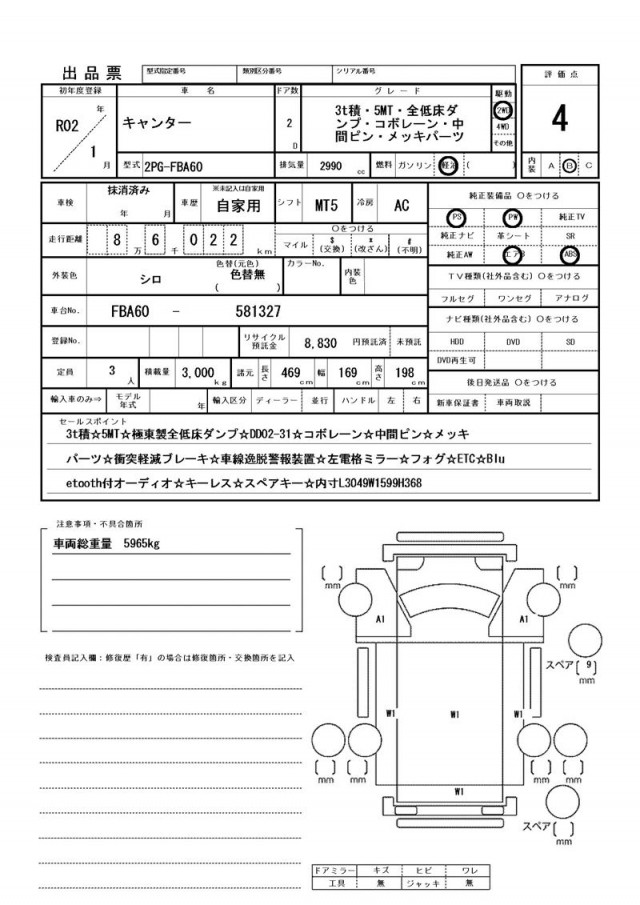 出品票 型式指定番号 類別区分番号 シリアル番号
評価点
4
初年度登録 車名 ドア数 グレード 駆動
R02年 1月
キャンター
2D
3t積・5MT・全低床ダ
ンプ・コボレーン・中
間ピン・メッキパーツ
2WD
4WD
その他
型式 2PG-FBA60 排気量 2990cc 燃料 ガソリン 軽油 ( ) 内装 A B C
車検 抹消済み 年 月 車歴 ※未記入は自家用 自家用 シフト MT5 冷房 AC
純正装備品 〇をつける
PS PW 純正TV
純正ナビ 革シート SR
純正AW エアB ABS
走行距離 8万 6千 0 2 2 km
〇をつける
マイル $(交換) *(改ざん) #(不明)
外装色 シロ 色替(元色) 色替無 ( ) カラーNo. 内装色
TV種類(社外品含む) 〇をつける
フルセグ ワンセグ アナログ
車台No. FBA60 - 581327
ナビ種類(社外品含む) 〇をつける
登録No. リサイクル預託金 8,830 円預託済 未預託
HDD DVD SD
DVD再生可
定員 3人 積載量 3,000kg 諸元 長さ 469cm 幅 169cm 高さ 198cm
後日発送品 〇をつける
輸入車のみ⇒ モデル年式 年 輸入区分 ディーラー 並行 ハンドル 左 右
新車保証書 車両取説
セールスポイント
3t積☆5MT☆極東製全低床ダンプ☆DD02-31☆コボレーン☆中間ピン☆メッキ
パーツ☆衝突軽減ブレーキ☆車線逸脱警報装置☆左電格ミラー☆フォグ☆ETC☆Blu
etooth付オーディオ☆キーレス☆スペアキー☆内寸L3049W1599H368
注意事項・不具合箇所
車両総重量 5965kg
検査員記入欄：修復歴「有」の場合は修復箇所・交換箇所を記入
[ ]mm
[ ]mm
A1
A1
スペア[ 9 ]mm
W1
W1
W1
[ ]mm
[ ]mm
[ ]mm
[ ]mm
W1
スペア[ ]mm
ドアミラー キズ ヒビ ワレ
工具 無 ジャッキ 無